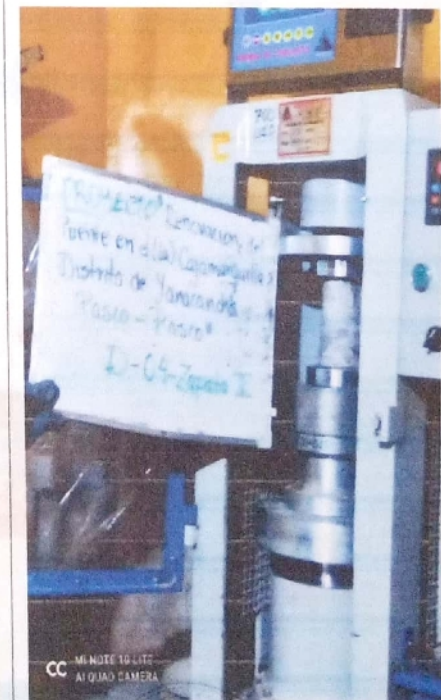 PROYECTO: Renovación del
Puente en el(la) Cajamarquilla
Distrito de Yanacancha
Pasco - Pasco"
D-04-Zapata II
MI NOTE 10 LITE
AI QUAD CAMERA